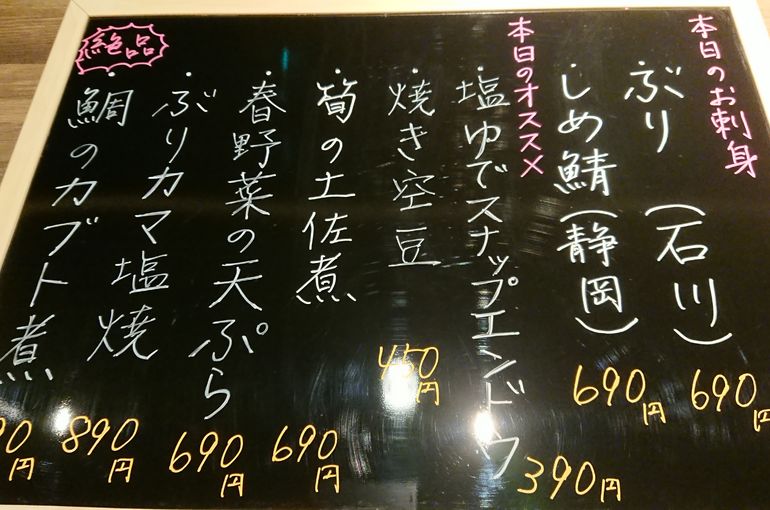 本日のお刺身
・ぶり(石川) 690円
・しめ鯖(静岡) 690円
本日のオススメ
・塩ゆでスナップエンドウ 390円
・焼き空豆 450円
・筍の土佐煮 690円
・春野菜の天ぷら 690円
・ぶりカマ塩焼 890円
絶品
・鯛のカブト煮 90円